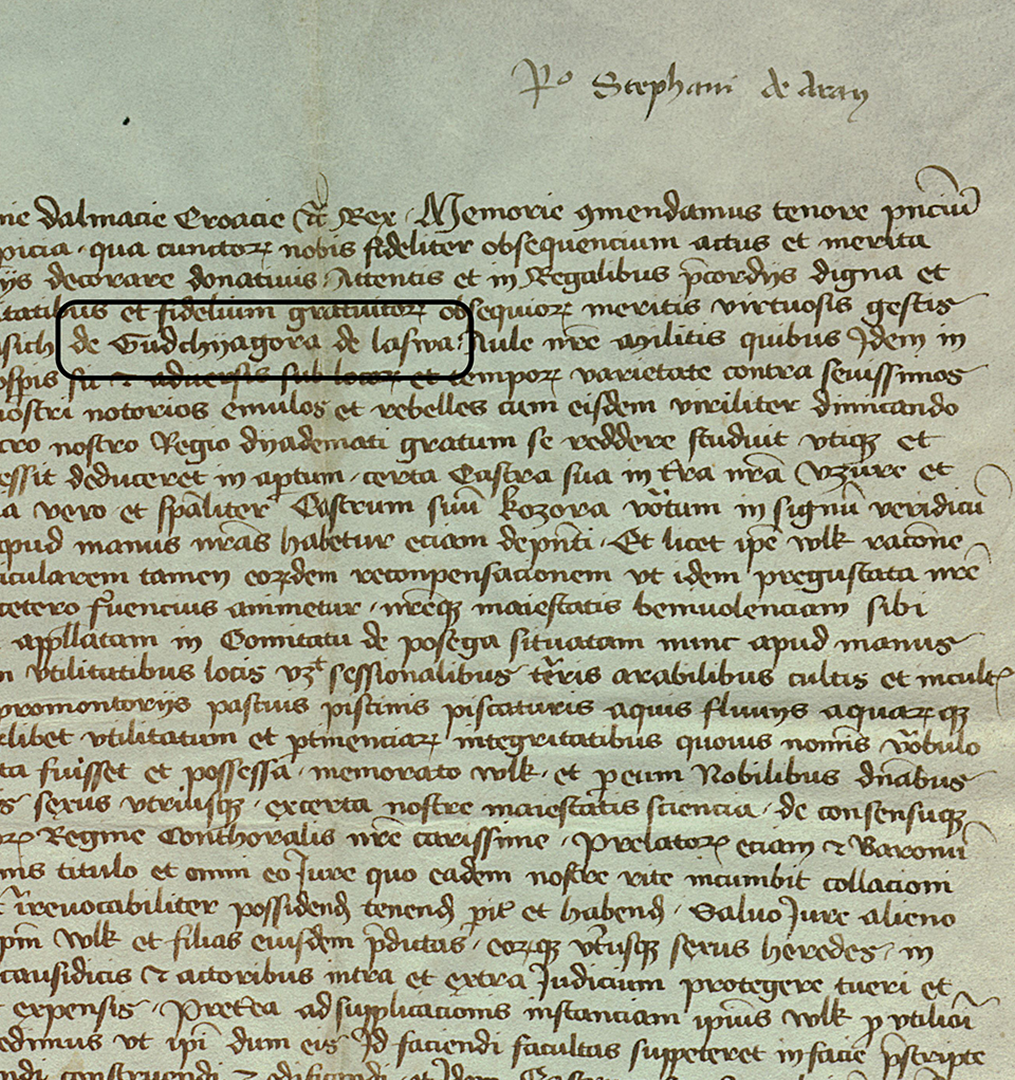 Stephani de Aran
nie Dalmacie Croacie Rex Memorie 9mendamus tenore pnciu
picia qua cunctoꝝ nobis fideliter obsequencium actus et merita
ijs decorare donativis Attentis et in Regalibus pcordijs digna et
itatibus et fidelium gratuitoꝝ obsequioꝝ meritis virtuosis gestis
sich de Gudchyagora de laswa Aule nre militis quibus Idem in
et tempoꝝ varietate contra seuissimos
nostri notorios emulos et rebelles cum eisdem viriliter dimicando
cro nostro Regio dyademati gratum se reddere studuit vtiqꝫ et
essit deduceret in apertum certa Castra sua in tra nra Vzure et
a vero et spaliter Castrum suu kozora votum in signu veridicu
apud manus nras habetur eciam depnti Et licet ipe wlk racone
icularem tamen eoꝝdem reconpensacionem vt idem pregustata nre
cetero fuencius animetur nreqꝫ maiestatis beniuolenciam sibi
appllatam in Comitatu de posega situatam nunc apud manus
vtilitatibus locis vzt sessionalibus tris arabilibus cultis et incult
promontorijs pascuis piscinis piscaturis aquis fluuijs aquaꝝ qꝫ
libet vtilitatum et ptinenciaꝝ integritatibus quouis nomis vobulo
ta fuisset et possessa memorato wlk et p eum Nobilibus dnabus
sexus vtriusqꝫ excerta nostre maiestatis sciencia de consensuqꝫ
Regine Conthoralis nre carissime Prelatoꝝ eciam et Baronu
mis titulo et omni eo Jure quo eadem nostre rite incumbit collacioni
irevocabiliter possidend tenend pit et habend Saluo Jure alieno
pm wlk et filias eiusdem pdictas eoꝝqꝫ vtusqꝫ sexus heredes in
causidicis et actoribus intra et extra Judicium protegere tueri et
expensis Pretea ad supplicacionis instanciam ipius wlk p vtiliori
edimus vt ipi dum eis Id faciendi facultas suppeteret in facie pscripte
construendi et edificandi